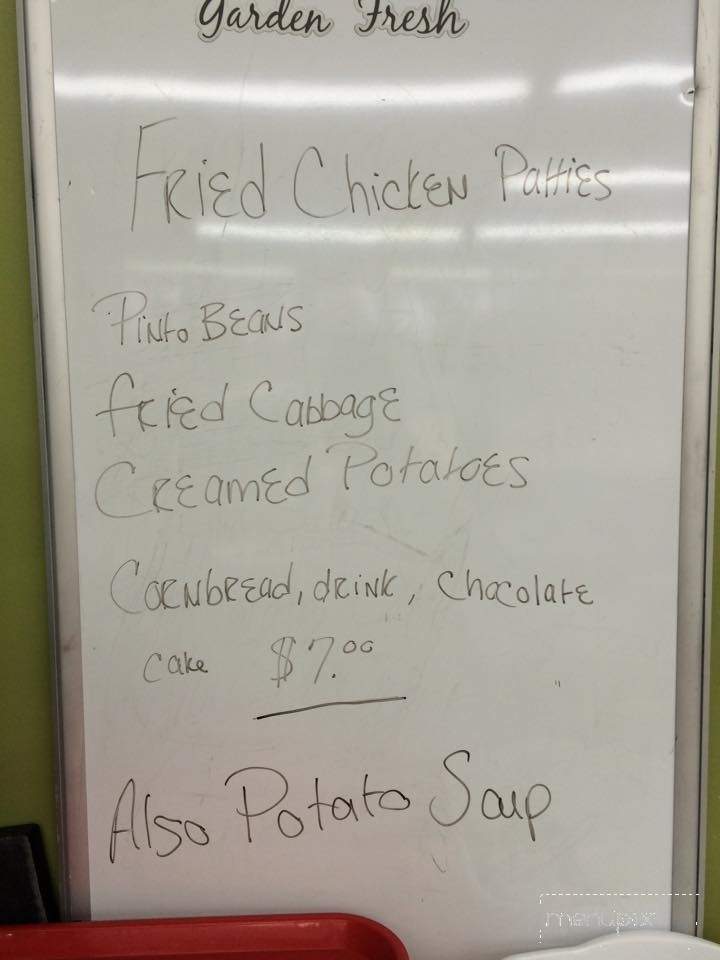 Garden Fresh
Fried Chicken Patties
Pinto Beans
fried Cabbage
Creamed Potatoes
Cornbread, drink, Chocolate
cake $7.00
Also Potato Soup
menupix